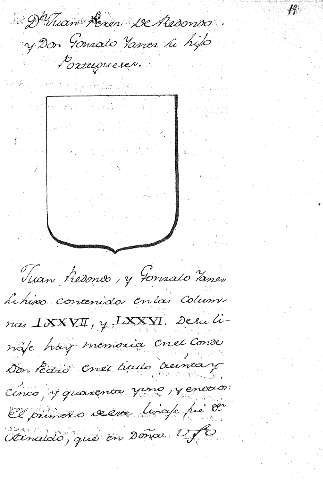 Dn Juan Perez De Redondo
y Don Gonzalo Yanes su hijo
Portugueses.
Juan Redondo, y Gonzalo Yanes
su hijo contenidos en las colum
nas LXXVII, y LXXVI. De su li-
naje hay memoria en el Conde
Don Pedro en el titulo treinta y
cinco, y quarenta y uno, y
El primero de este linaje fué Dn
que en Doña